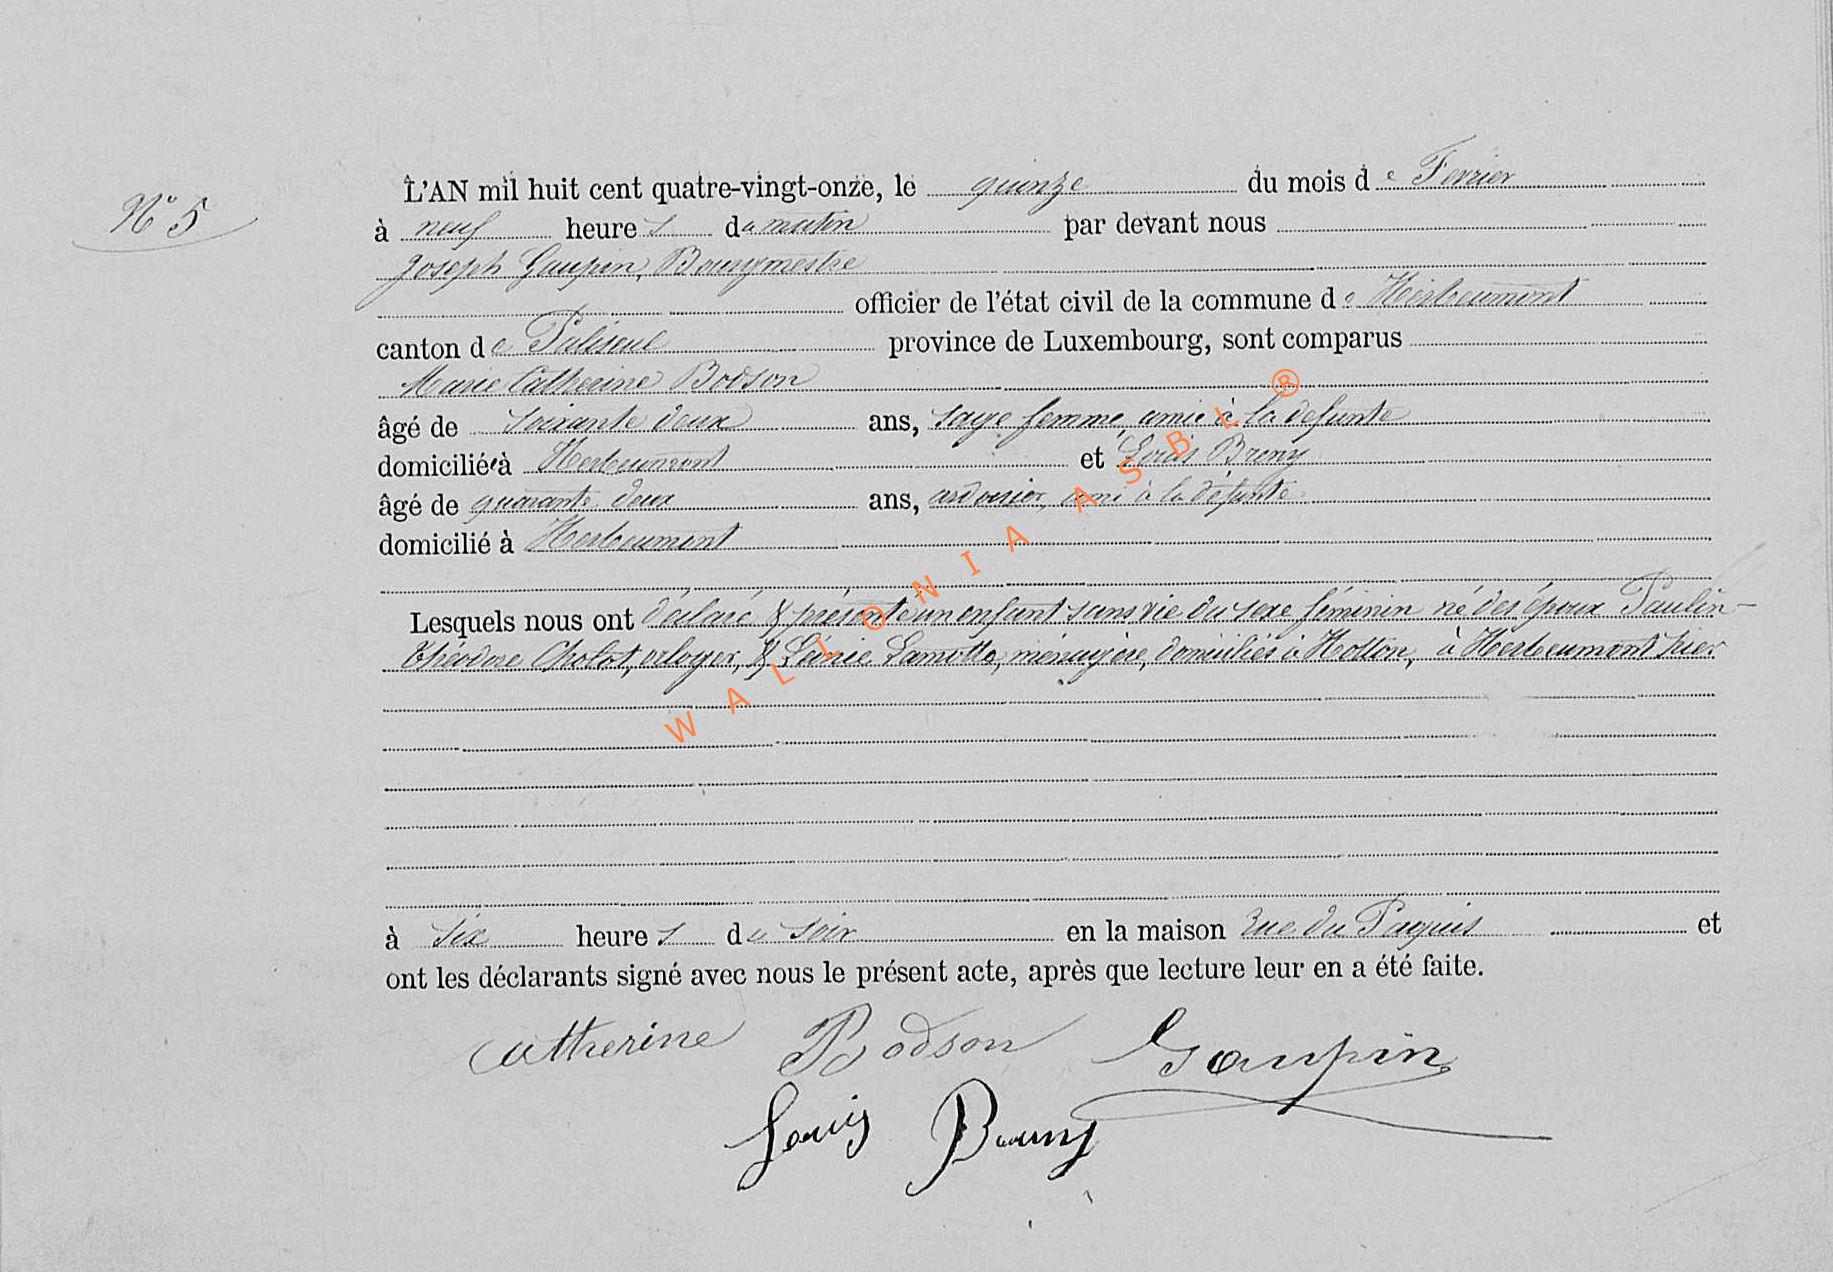 N° 5
L'AN mil huit cent quatre-vingt-onze, le quinze du mois de Fevrier
à neuf heures du matin par devant nous
Joseph Gaupin, Bourgmestre
officier de l'état civil de la commune de Herbeumont
canton de Paliseul province de Luxembourg, sont comparus
Marie Catherine Bodson
âgé de soixante deux ans, sage femme, amie à la defunte
domiciliée à Herbeumont et Louis Breny
âgé de quarante deux ans, ardoisier, ami à la défunte
domicilié à Herbeumont
Lesquels nous ont déclaré & présenté un enfant sans vie du sexe féminin né des époux Paulin-
Théodore Cholot, horloger, & Lamotte, ménagère, domiciliés à Hotton, à Herbeumont hier
à six heures du soir en la maison rue du Paquis et
ont les déclarants signé avec nous le présent acte, après que lecture leur en a été faite.
Catherine Bodson Gaupin
Louis Breny
WALLONIA ASBL ®